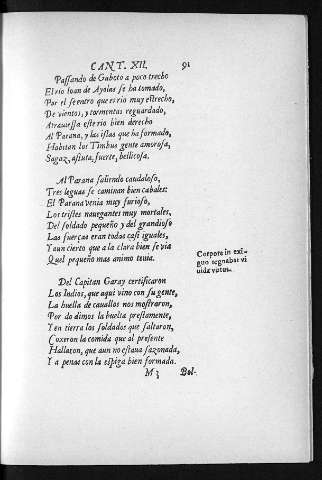 CANT. XII. 91
Passando de Guboto a poco trecho
El rio Iuan de Ayolas se ha tomado,
Por el se entro que es rio muy estrecho,
De vientos, y tormentas reguardado,
Atrauiessa este rio bien derecho
Al Parana, y las islas que ha formado,
Habitan los Timbus gente amorosa,
Sagaz, astuta, fuerte, bellicosa.
Al Parana saliendo caudaloso,
Tres leguas se caminan bien cabales:
El Parana venia muy furioso,
Los tristes nauegantes muy mortales,
Del soldado pequeño y del grandioso
Las fuerças eran todas casi iguales,
Y aun cierto que a la clara bien se via
Quel pequeño mas animo tenia.
Corpore in exi-
guo regnabat vi
uida virtus.
Del Capitan Garay certificaron
Los Indios, que aqui vino con su gente,
La huella de cauallos nos mostraron,
Por do dimos la buelta prestamente,
Y en tierra los soldados que saltaron,
Coxeron la comida que al presente
Hallaron, que aun no estaua sazonada,
Y a penas con la espiga bien formada.
M 3 Bol-